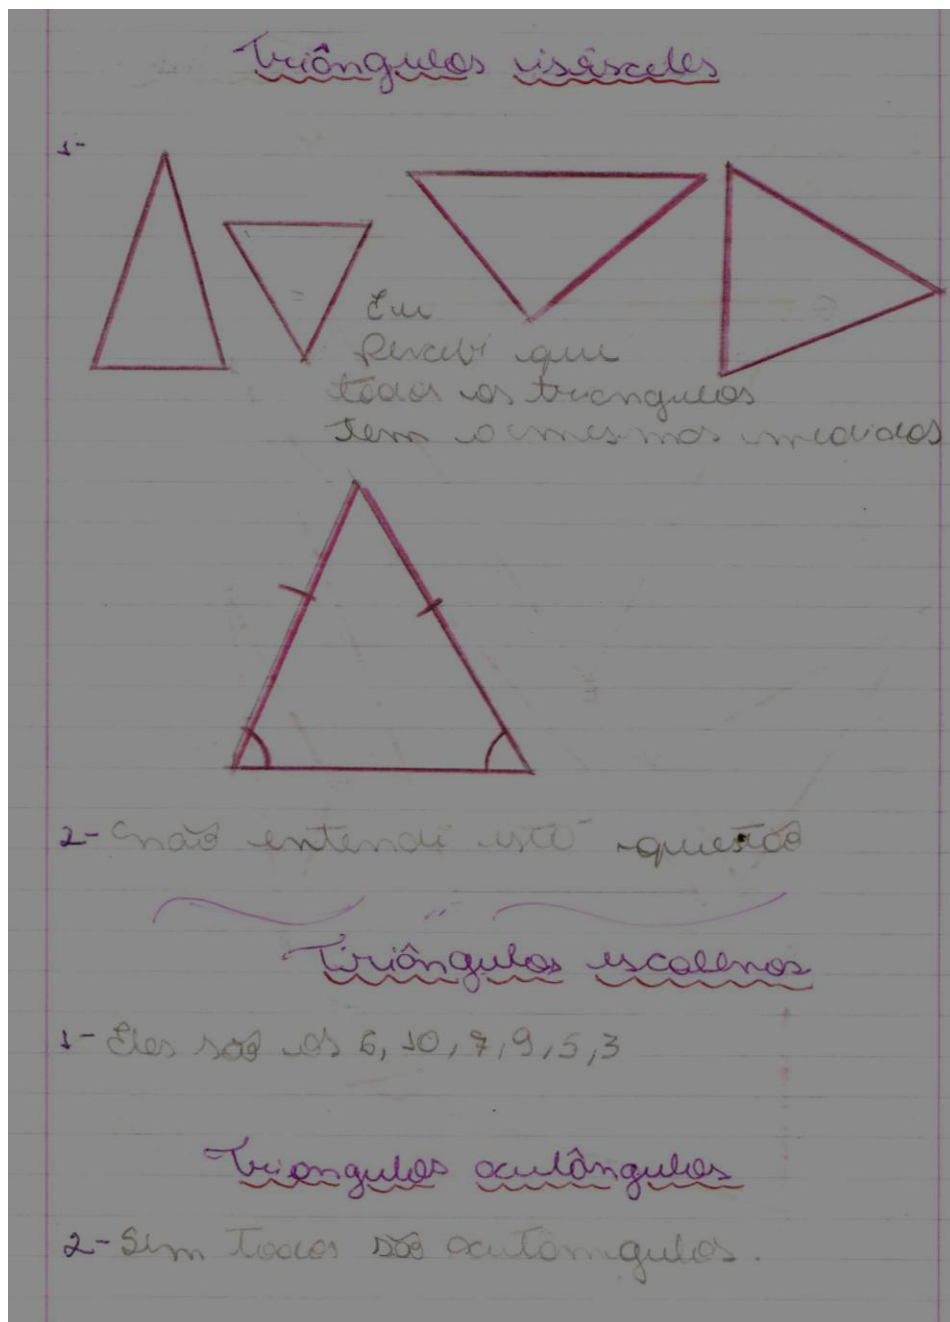 Triângulos isósceles
1-
Eu
percebi que
todos os triangulos
tem as mesmas medidas
2- não entendi esta questão
Triângulos escalenos
1- Eles são os 6, 10, 7, 9, 5, 3
Triangulos acutângulos
2- Sim todos são acutângulos.